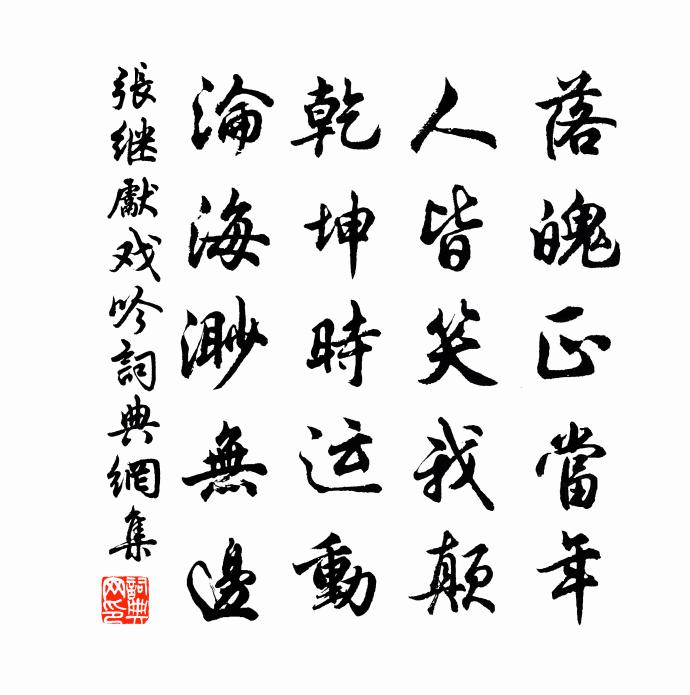 落魄正當年
人皆笑我颠
乾坤時运動
淪海渺無邊
張继獻戏吟詞典網集
詞典网印